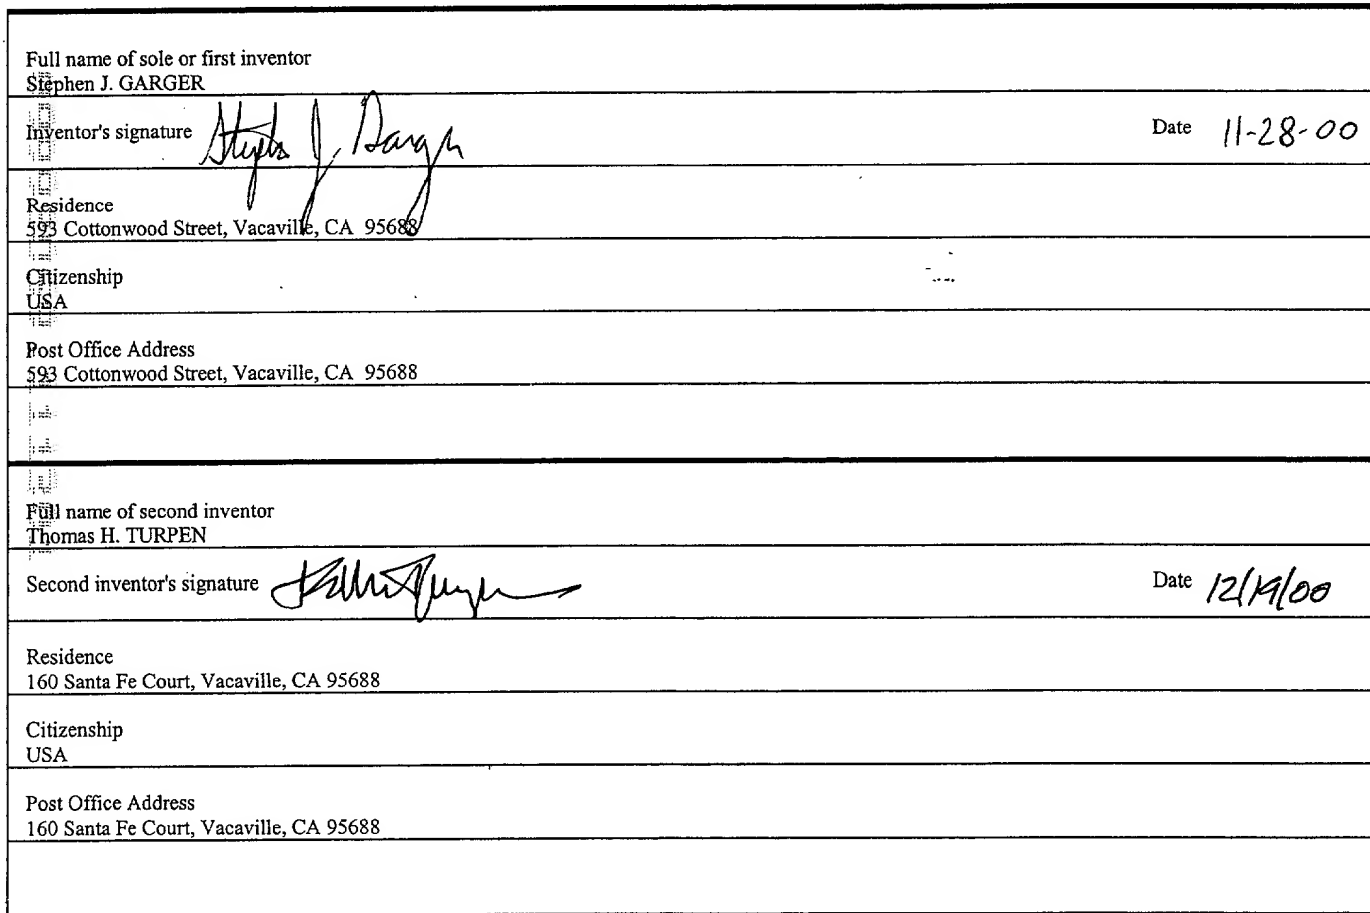 Full name of sole or first inventor
Stephen J. GARGER
Inventor's signature Stephen J. Garger Date 11-28-00
Residence
593 Cottonwood Street, Vacaville, CA 95688
Citizenship
USA
Post Office Address
593 Cottonwood Street, Vacaville, CA 95688
Full name of second inventor
Thomas H. TURPEN
Second inventor's signature Date 12/19/00
Residence
160 Santa Fe Court, Vacaville, CA 95688
Citizenship
USA
Post Office Address
160 Santa Fe Court, Vacaville, CA 95688